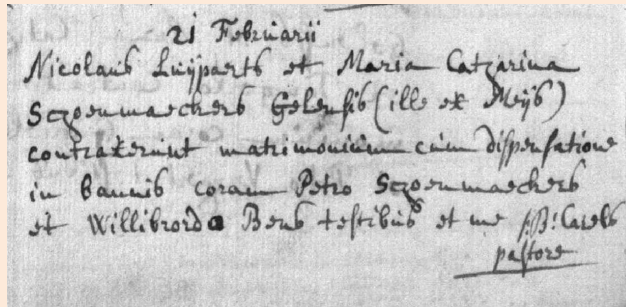 21 Februarii
Nicolaus Luijparts et Maria Catharina
Schoenmaeckers Gelensis (ille ex Meijs)
contraxerunt matrimonium cum dispensatione
in bannis coram Petro Schoenmaeckers
et Willibrordo Bens testibus et me
pastore